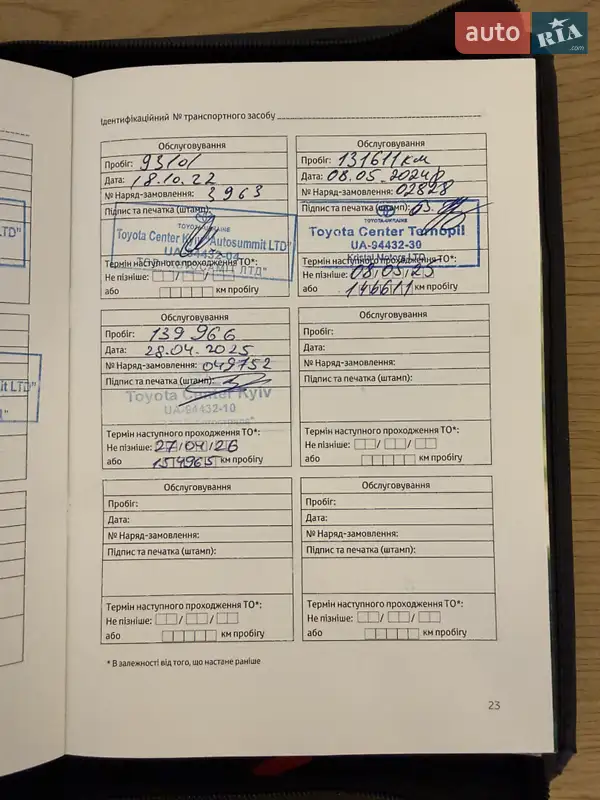 auto RIA .com
Ідентифікаційний № транспортного засобу
Обслуговування
Пробіг: 93101
Дата: 18.10.22
№ Наряд-замовлення: 3963
Підпис та печатка (штамп):
TOYOTA-UKRAINE
Toyota Center Kyiv "Autosummit LTD"
UA-94432-04
Термін наступного проходження ТО*:
Не пізніше:
або км пробігу
Обслуговування
Пробіг: 131611 км
Дата: 08.05.2024р
№ Наряд-замовлення: 02828
Підпис та печатка (штамп):
TOYOTA-UKRAINE
Toyota Center Ternopil
UA-94432-30
Kristal Motors LTD
Термін наступного проходження ТО*:
Не пізніше: 08/05/25
або 146611 км пробігу
Обслуговування
Пробіг: 139 966
Дата: 28.04.2025
№ Наряд-замовлення: 049752
Підпис та печатка (штамп):
Toyota Center Kyiv
UA-94432-10
Термін наступного проходження ТО*:
Не пізніше: 27/04/26
або 154965 км пробігу
Обслуговування
Пробіг:
Дата:
№ Наряд-замовлення:
Підпис та печатка (штамп):
Термін наступного проходження ТО*:
Не пізніше:
або км пробігу
Обслуговування
Пробіг:
Дата:
№ Наряд-замовлення:
Підпис та печатка (штамп):
Термін наступного проходження ТО*:
Не пізніше:
або км пробігу
Обслуговування
Пробіг:
Дата:
№ Наряд-замовлення:
Підпис та печатка (штамп):
Термін наступного проходження ТО*:
Не пізніше:
або км пробігу
* В залежності від того, що настане раніше
23
LTD"
it LTD"